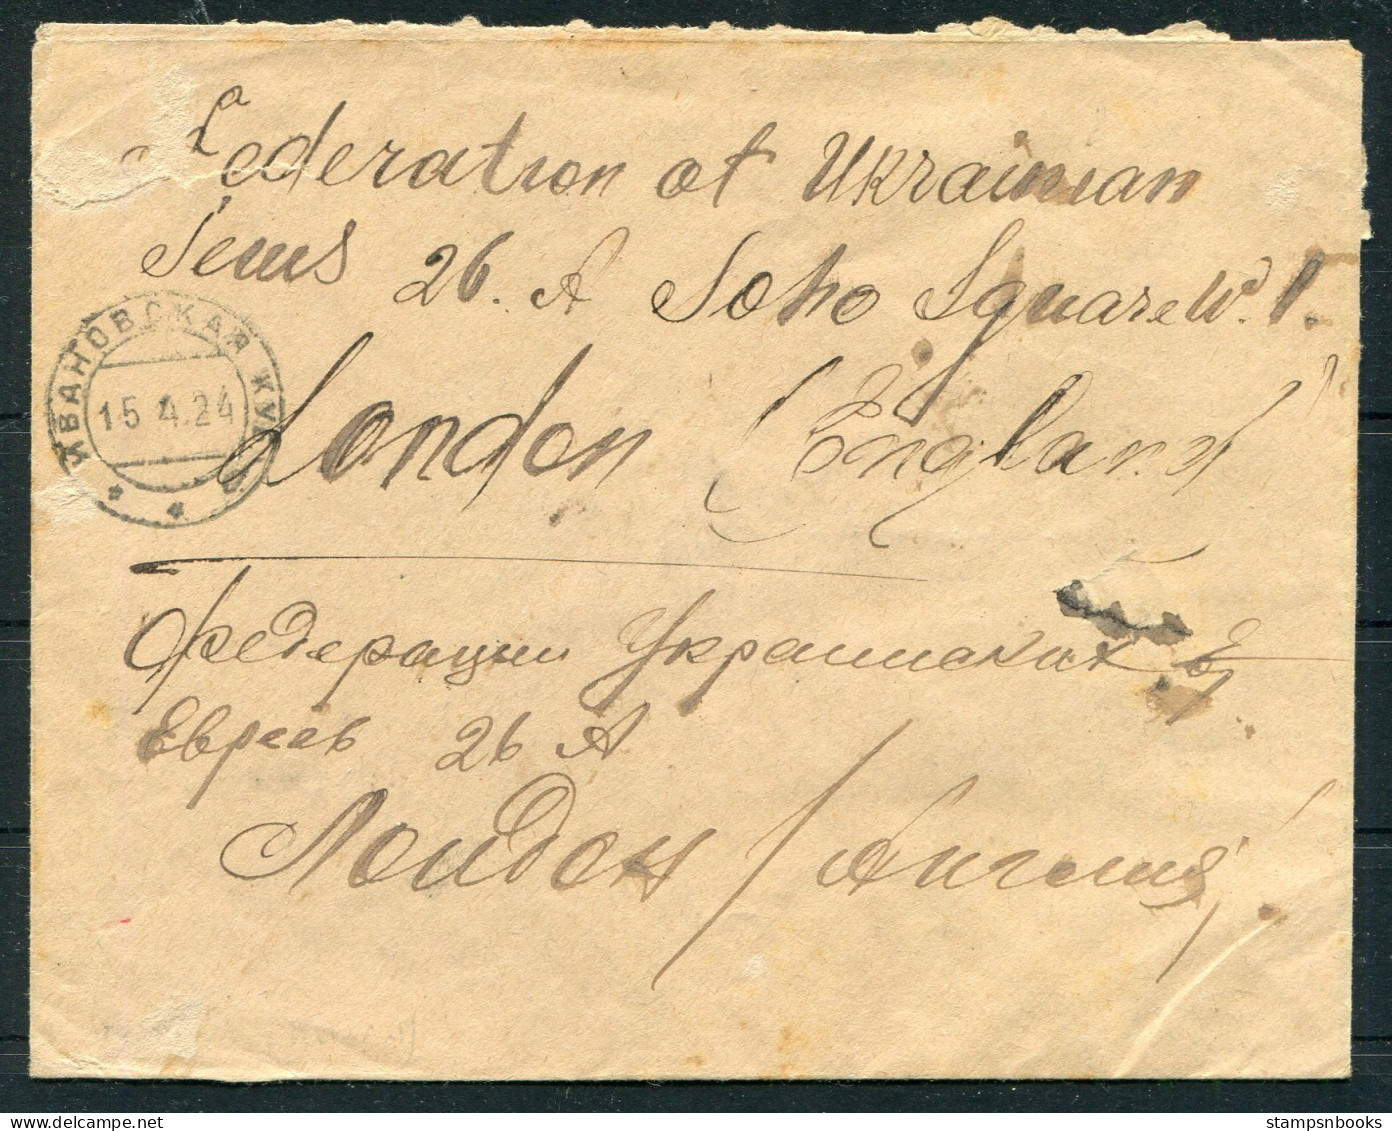 Federation of Ukrainian
Jews 26. A Soho Square W. 1.
ИВАНОВСКАЯ
15 4.24
London (England)
Федерации Украинских
Евреев 26 А
Лондон /Англия/
stampsnbooks